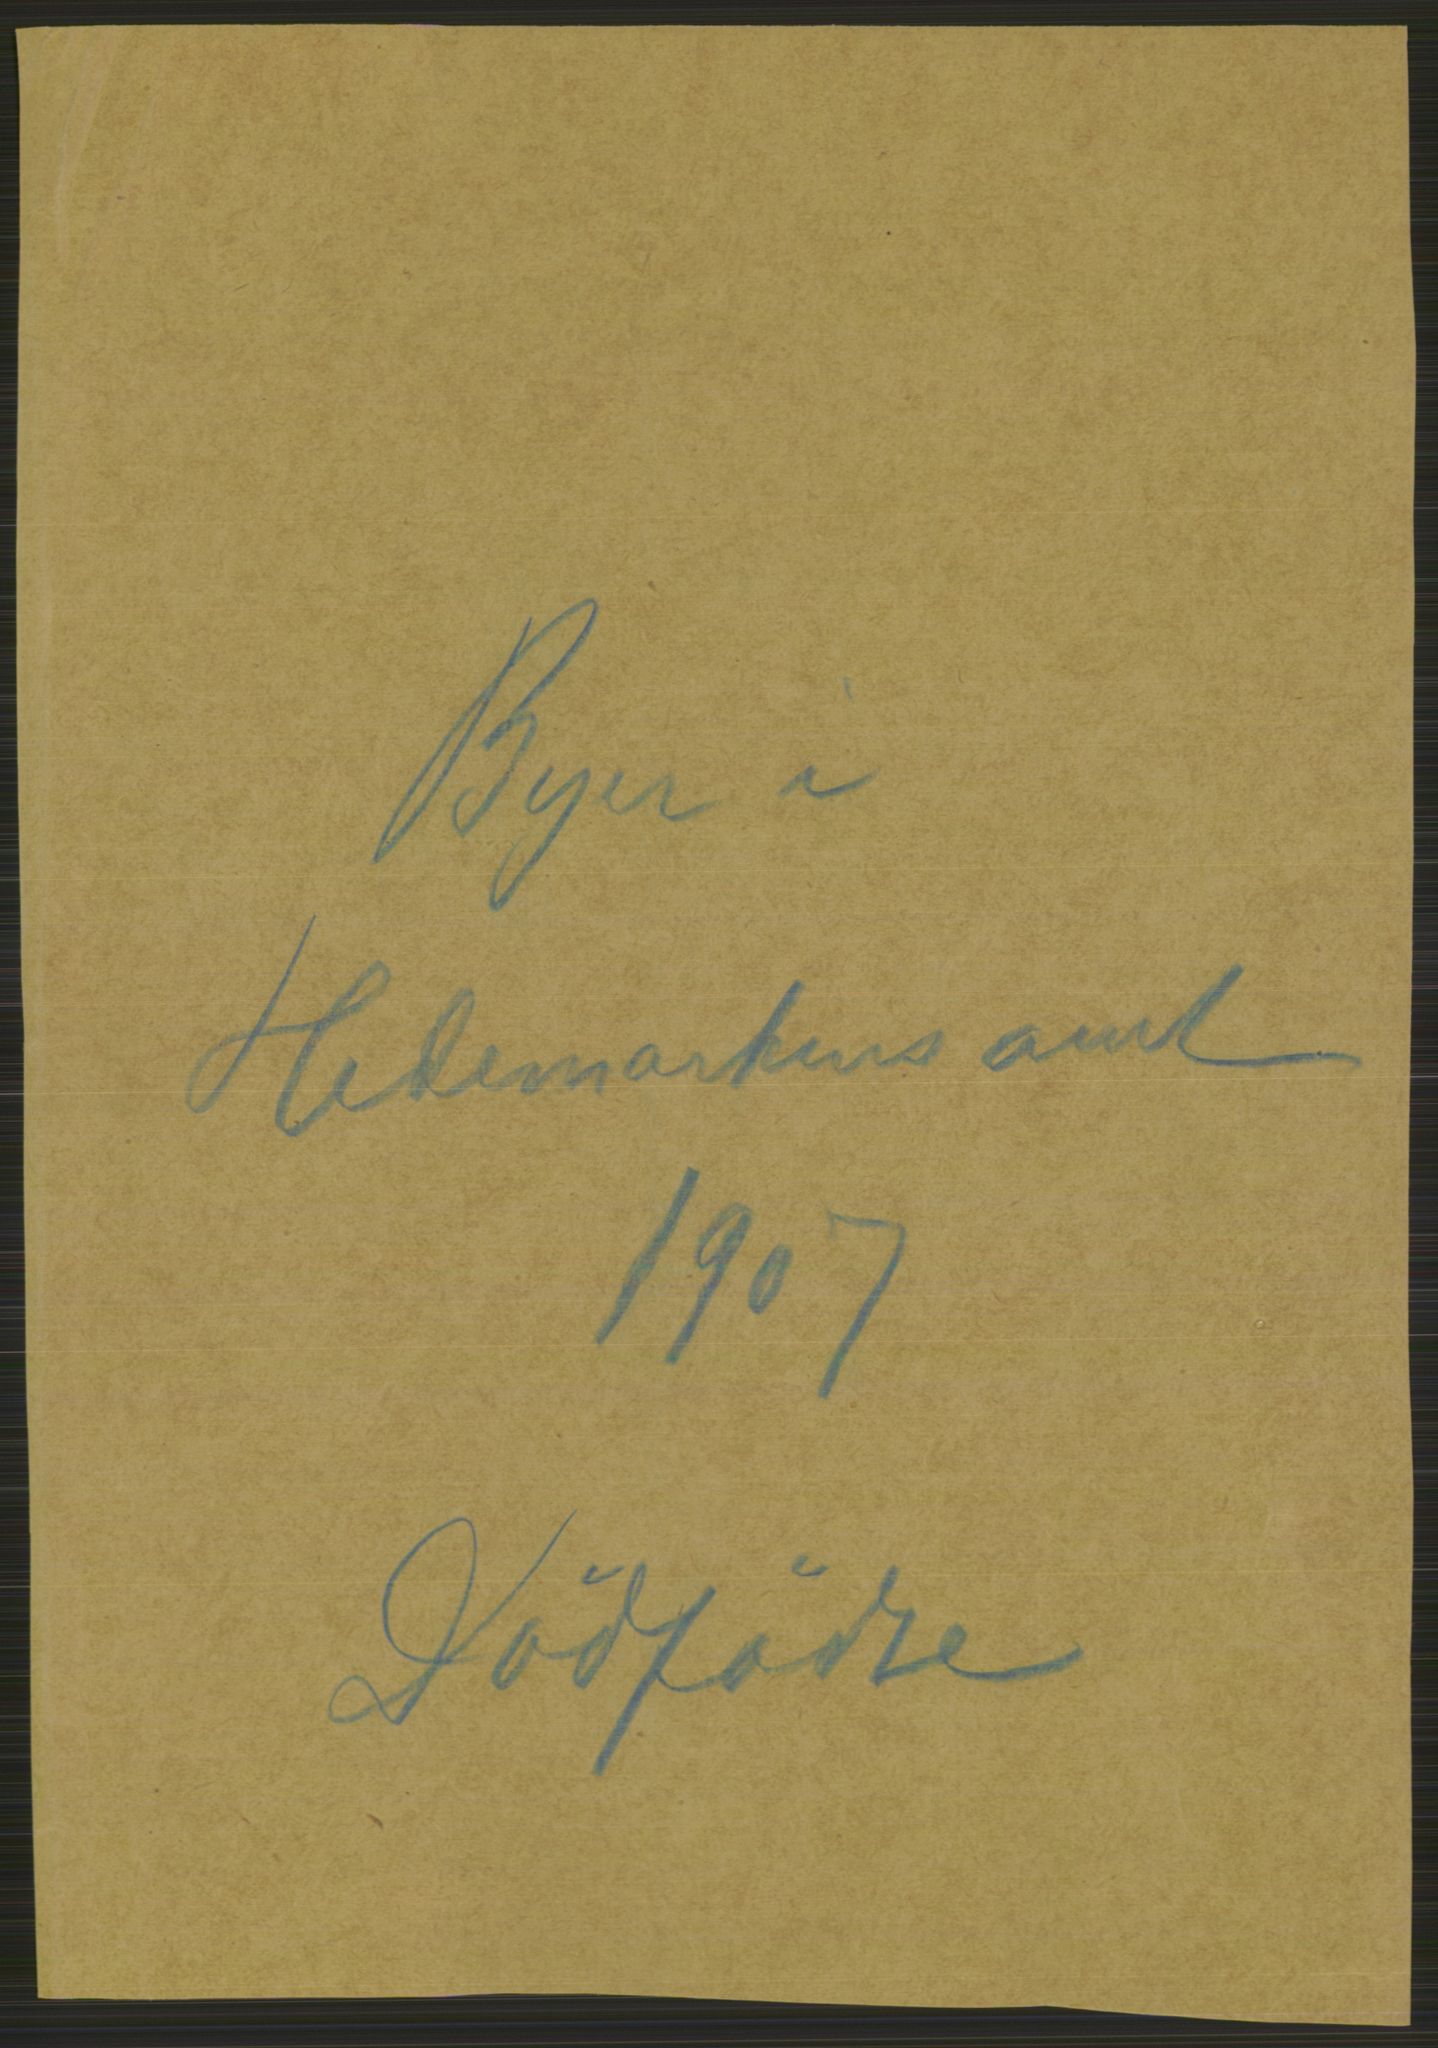 Byer i
Hedemarkens amt
1907
Dödfödte